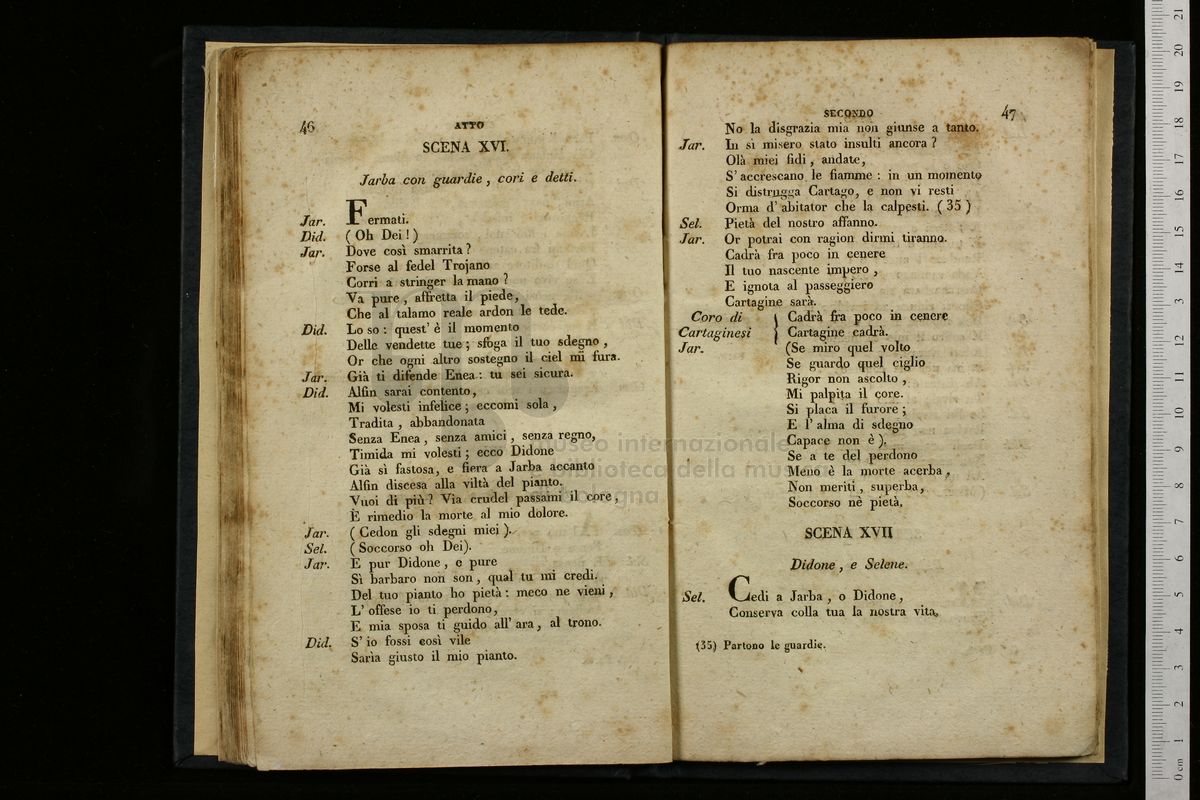 46
ATTO
SCENA XVI.
Jarba con guardie, cori e detti.
Jar. Fermati.
Did. (Oh Dei!)
Jar. Dove così smarrita?
Forse al fedel Trojano
Corri a stringer la mano?
Va pure, affretta il piede,
Che al talamo reale ardon le tede.
Did. Lo so: quest' è il momento
Delle vendette tue; sfoga il tuo sdegno,
Or che ogni altro sostegno il ciel mi fura.
Jar. Già ti difende Enea: tu sei sicura.
Did. Alfin sarai contento,
Mi volesti infelice; eccomi sola,
Tradita, abbandonata
Senza Enea, senza amici, senza regno,
Timida mi volesti; ecco Didone
Già sì fastosa, e fiera a Jarba accanto
Alfin discesa alla viltà del pianto.
Vuoi di più? Via crudel passami il core,
È rimedio la morte al mio dolore.
Jar. (Cedon gli sdegni miei).
Sel. (Soccorso oh Dei).
Jar. E pur Didone, e pure
Sì barbaro non son, qual tu mi credi.
Del tuo pianto ho pietà: meco ne vieni,
L' offese io ti perdono,
E mia sposa ti guido all' ara, al trono.
Did. S' io fossi così vile
Saria giusto il mio pianto.
SECONDO
47
No la disgrazia mia non giunse a tanto.
Jar. In sì misero stato insulti ancora?
Olà miei fidi, andate,
S' accrescano le fiamme: in un momento
Si distrugga Cartago, e non vi resti
Orma d' abitator che la calpesti. (35)
Sel. Pietà del nostro affanno.
Jar. Or potrai con ragion dirmi tiranno.
Cadrà fra poco in cenere
Il tuo nascente impero,
E ignota al passeggiero
Cartagine sarà.
Coro di } Cadrà fra poco in cenere
Cartaginesi } Cartagine cadrà.
Jar. (Se miro quel volto
Se guardo quel ciglio
Rigor non ascolto,
Mi palpita il core.
Si placa il furore;
E l' alma di sdegno
Capace non è).
Se a te del perdono
Meno è la morte acerba,
Non meriti, superba,
Soccorso nè pietà.
SCENA XVII
Didone, e Selene.
Sel. Cedi a Jarba, o Didone,
Conserva colla tua la nostra vita.
(35) Partono le guardie.
museo internazionale
biblioteca della musica
bologna
0 cm 1 2 3 4 5 6 7 8 9 10 11 12 13 14 15 16 17 18 19 20 21